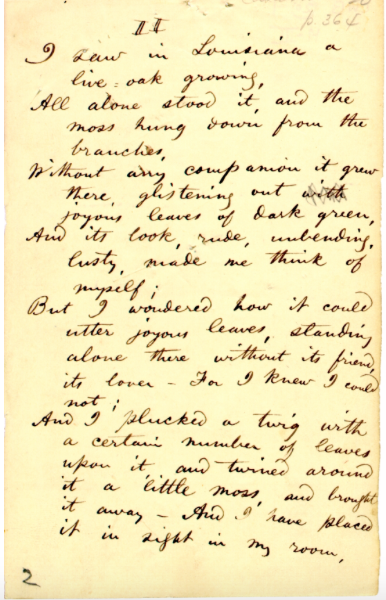 p 364
II
I saw in Louisiana a
live-oak growing,
All alone stood it, and the
moss hung down from the
branches,
Without any companion it grew
there, glistening out with
joyous leaves of dark green,
And its look, rude, unbending,
lusty, made me think of
myself;
But I wondered how it could
utter joyous leaves, standing
alone there without its friend,
its lover — For I knew I could
not;
And I plucked a twig with
a certain number of leaves
upon it, and twined around
it a little moss, and brought
it away — And I have placed
it in sight in my room,
2